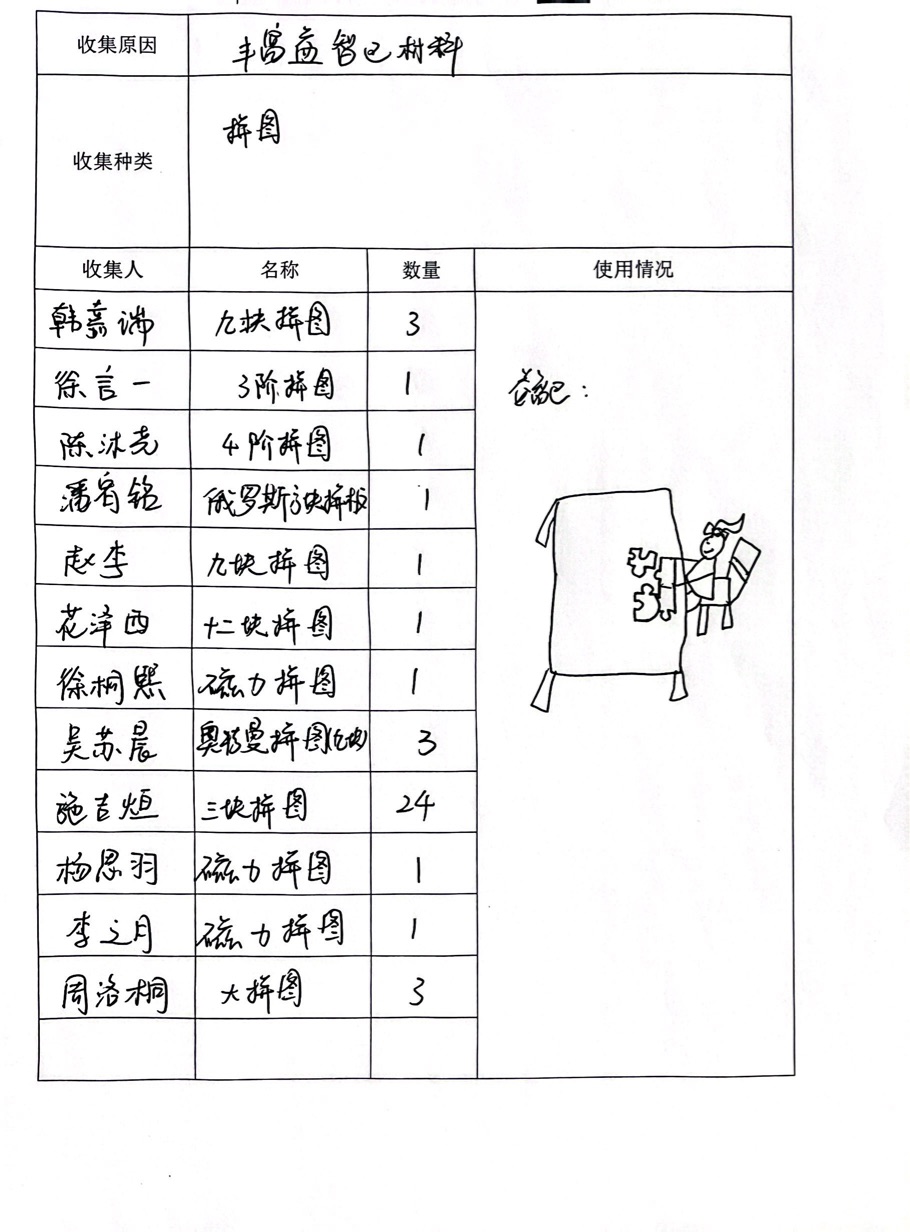 收集原因 丰富益智区材料
收集种类 拼图
收集人 名称 数量 使用情况
韩嘉瑞 九块拼图 3
徐言一 3阶拼图 1
陈沐尧 4阶拼图 1
潘宥铭 俄罗斯方块拼板 1
赵李 九块拼图 1
花泽西 十二块拼图 1
徐桐熙 磁力拼图 1
吴苏晨 奥特曼拼图(九块) 3
施吉烜 三块拼图 24
杨思羽 磁力拼图 1
李之月 磁力拼图 1
周洛桐 大拼图 3
益智区：